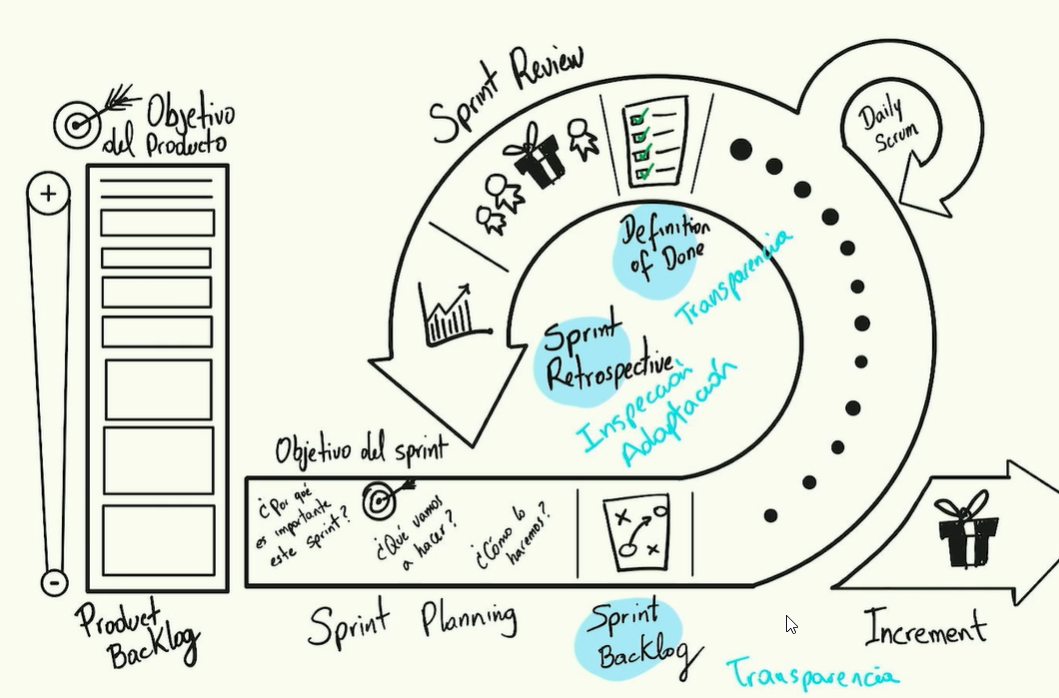 Objetivo
del Producto
+
-
Product
Backlog
Sprint Review
Daily
Scrum
Definition
of Done
Transparencia
Sprint
Retrospective
Inspección
Adaptación
Objetivo del sprint
¿Por qué
es importante
este sprint?
¿Qué vamos
a hacer?
¿Cómo lo
hacemos?
Sprint Planning
Sprint
Backlog
Transparencia
Increment